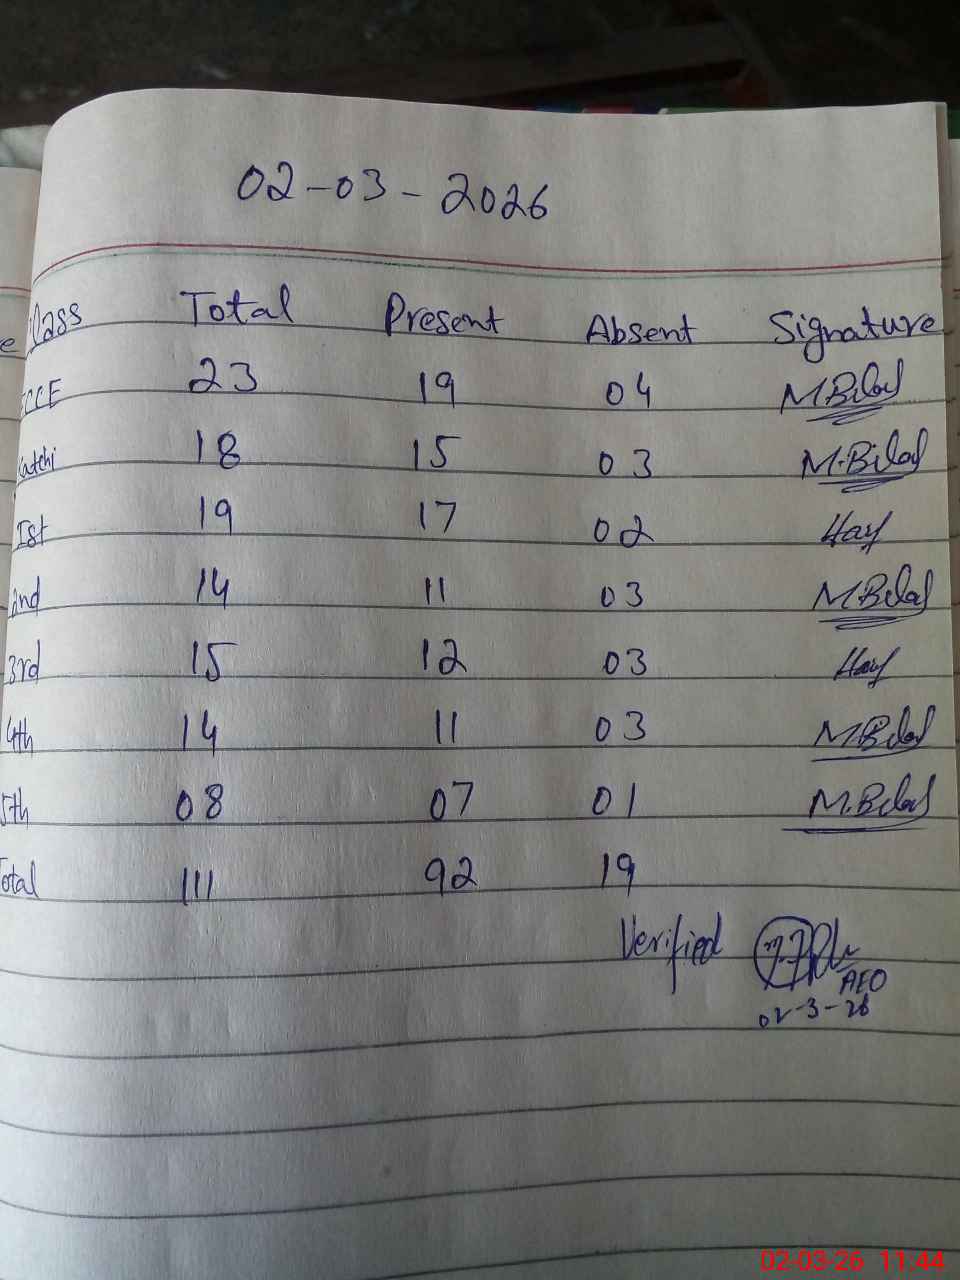 02-03-2026
Class Total Present Absent Signature
ECCE 23 19 04 M.Bilal
Katchi 18 15 03 M.Bilal
Ist 19 17 02
2nd 14 11 03 M.Bilal
3rd 15 12 03
4th 14 11 03 M.Bilal
5th 08 07 01 M.Bilal
Total 111 92 19
Verified
AEO
02-3-26
02-03-26 11:44